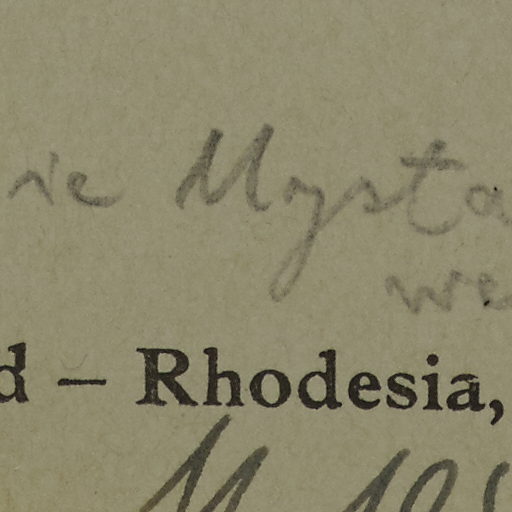 ie Mysta
we
d – Rhodesia,